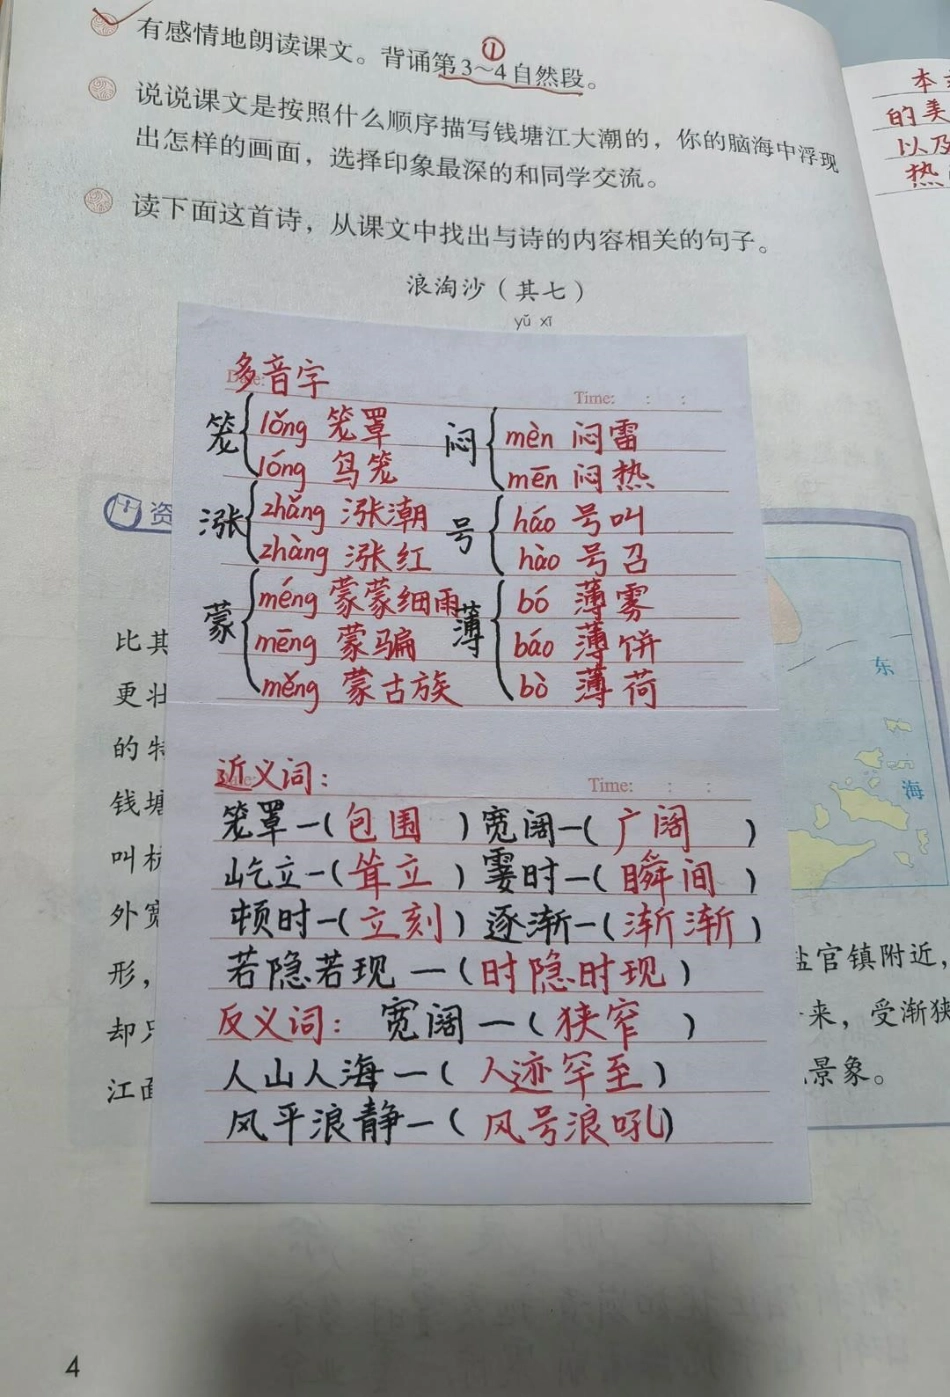 有感情地朗读课文。背诵第3~4自然段。
①
说说课文是按照什么顺序描写钱塘江大潮的，你的脑海中浮现
出怎样的画面，选择印象最深的和同学交流。
读下面这首诗，从课文中找出与诗的内容相关的句子。
浪淘沙（其七）
yǔ xī
多音字
Time: : :
笼 lǒng 笼罩
lóng 鸟笼
闷 mèn 闷雷
mēn 闷热
涨 zhǎng 涨潮
zhàng 涨红
号 háo 号叫
hào 号召
蒙 méng 蒙蒙细雨
mēng 蒙骗
měng 蒙古族
薄 bó 薄雾
báo 薄饼
bò 薄荷
近义词：
Time: : :
笼罩—(包围) 宽阔—(广阔)
屹立—(耸立) 霎时—(瞬间)
顿时—(立刻) 逐渐—(渐渐)
若隐若现—(时隐时现)
反义词： 宽阔—(狭窄)
人山人海—(人迹罕至)
风平浪静—(风号浪吼)
资
比其
更壮
的特
钱塘
叫杭
外宽
形，
却只
江面
东
海
盐官镇附近，
来，受渐狭
景象。
本
的美
以及
热
4